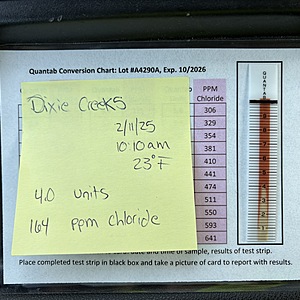 Quantab Conversion Chart: Lot #A4290A, Exp. 10/2026
Dixie Creeks
2/11/25
10:10 am
23°F
4.0 units
164 ppm chloride
PPM
Chloride
306
329
354
381
410
441
474
511
550
593
641
QUANTAB
date and time of sample, results of test strip.
Place completed test strip in black box and take a picture of card to report with results.